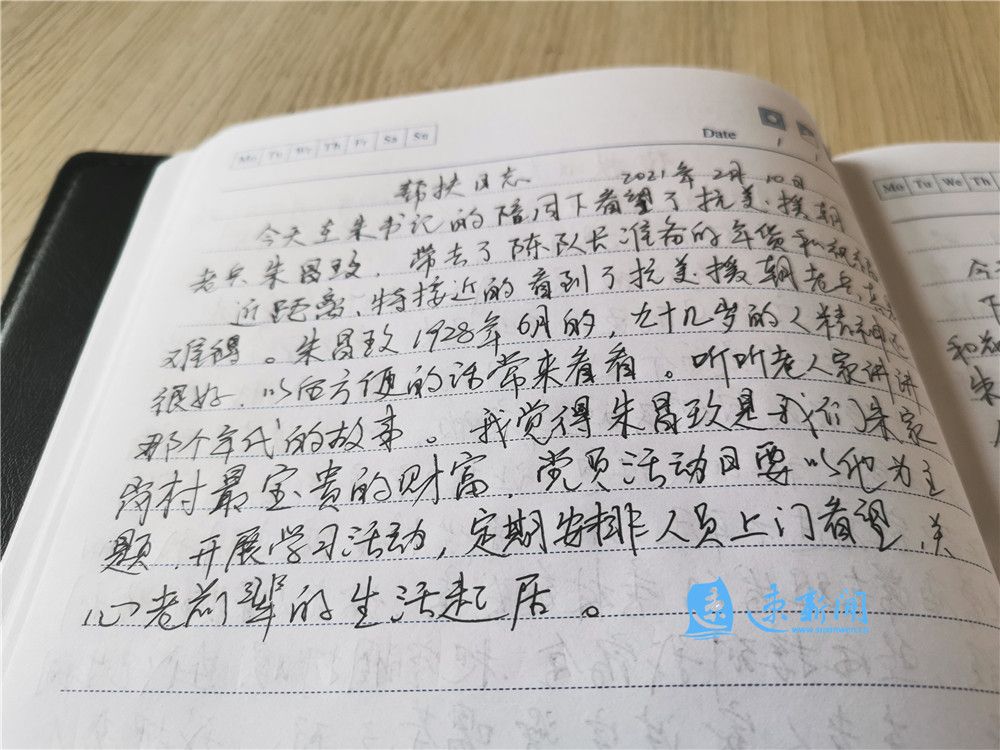 Mo Tu We Th Fr Sa Su
Date
帮扶日志 2021年2月10日
今天在朱书记的陪同下看望了抗美援朝
老兵朱昌玫，带去了陈队长准备的年货和
近距离，特接近的看到了抗美援朝老兵，
难得。朱昌玫1928年6月的，九十几岁的人精神还
很好，以后方便的话常来看看。听听老人家讲讲
那个年代的故事。我觉得朱昌玫是我们朱家
岗村最宝贵的财富，党员活动日要以他为主
题，开展学习活动，定期安排人员上门看望，关
心老前辈的生活起居。
Mo Tu We Th
今
下
和
朱
束新闻